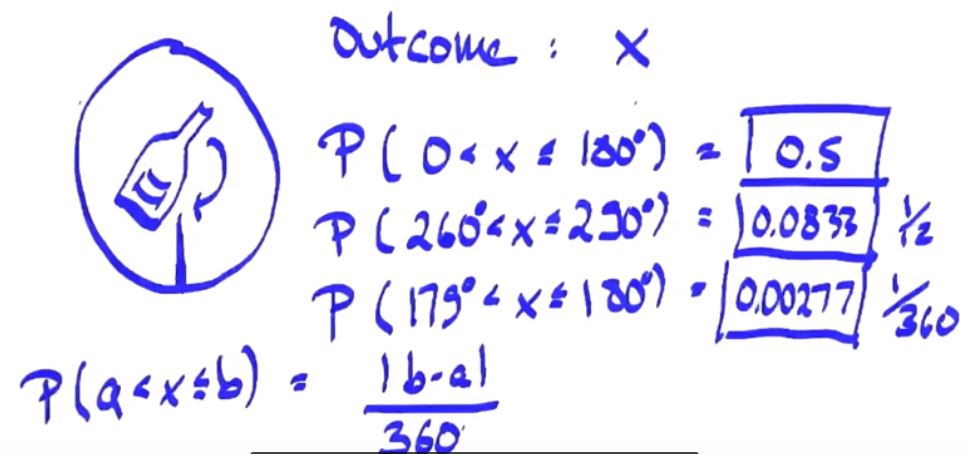 Outcome : X
P(0 < x ≤ 180°) = 0.5
P(260° < x ≤ 290°) = 0.0833 1/12
P(179° < x ≤ 180°) = 0.00277 1/360
P(a < x ≤ b) = |b-a|/360